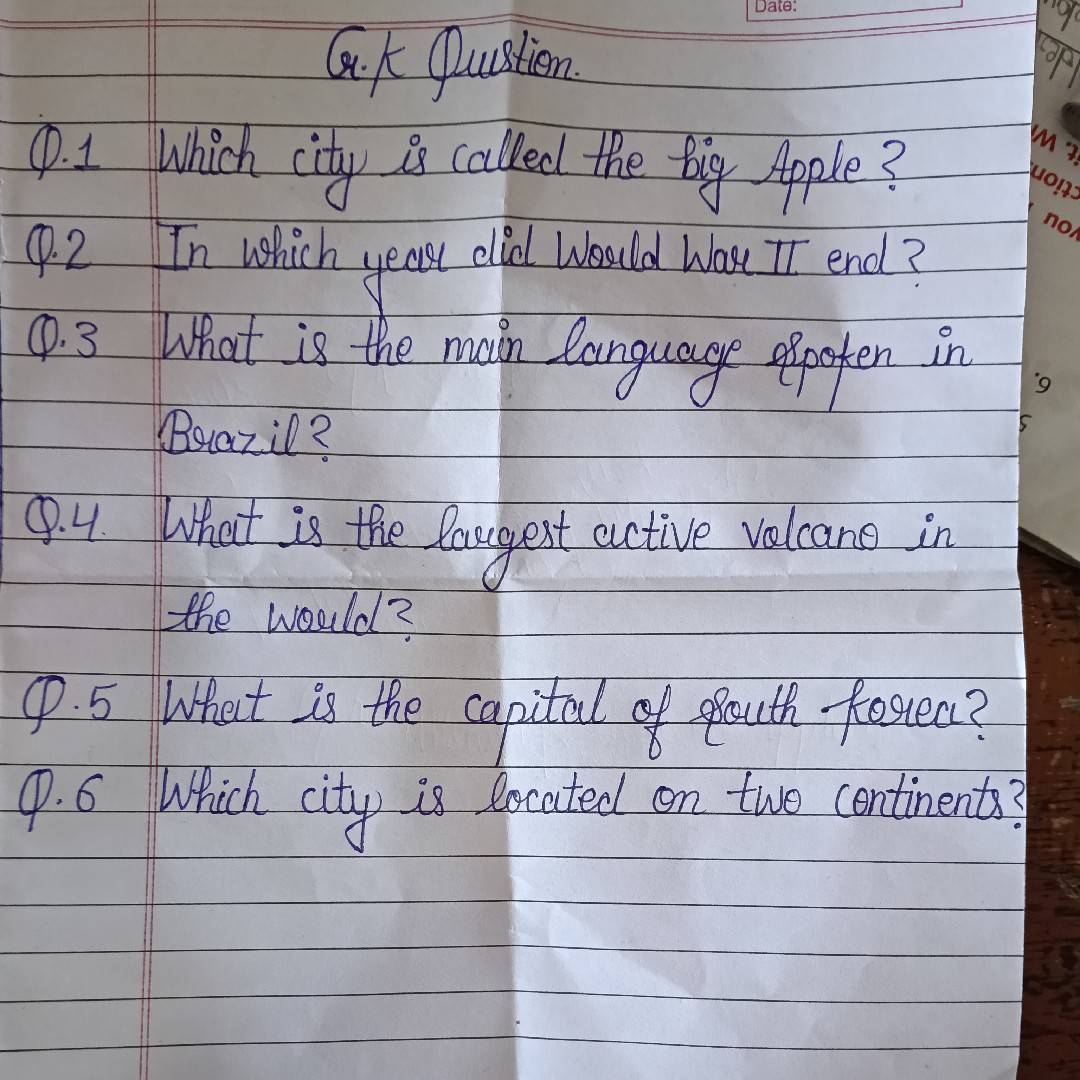 Date:
G.K Quustion.
Q.1 Which city is called the big Apple?
Q.2 In which year did World War II end?
Q.3 What is the main language spoken in
Brazil?
Q.4. What is the largest active volcano in
the world?
Q.5 What is the capital of south korea?
Q.6 Which city is located on two continents?
ction
you
6.